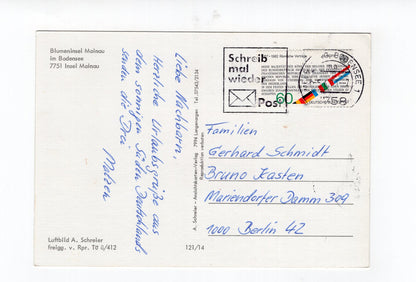 Blumeninsel Mainau
im Bodensee
7751 Insel Mainau
Liebe Nachbarn,
Herzliche Urlaubsgrüße aus
dem sonnigen Süden Deutschlands
senden die Drei
Luftbild A. Schreier
freigg. v. Rpr. Tü
121/14
A. Schreier - Ansichtskarten-Verlag - 7994 Langenargen - Tel. 07543/2134
Reproduktion verboten
Schreib
mal
wieder
Post
60
Familien
Gerhard Schmidt
Bruno Kasten
Mariendorfer Damm 309
1000 Berlin 42